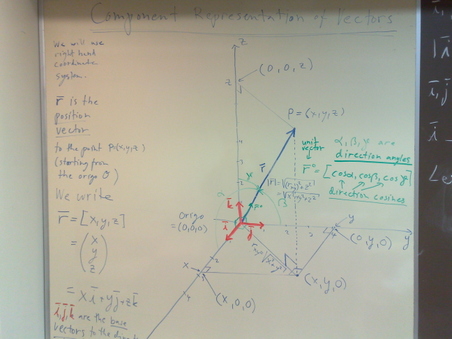 Component Representation of Vectors
We will use
right hand
coordinate
system.
r̄ is the
position
vector
to the point P=(x,y,z)
(starting from
the origo O)
We write
r̄ = [x,y,z]
= (x
y
z)
= xī+yj̄+zk̄
ī,j̄,k̄ are the base
vectors to the
z
z
(0,0,z)
P=(x,y,z)
r̄
unit
vector
r̄°=
α, β, γ are
direction angles
[cosα, cosβ, cosγ]
direction cosines
Origo
=(0,0,0)
k̄
ī
j̄
y
y
(0,y,0)
(x,y,0)
x
(x,0,0)